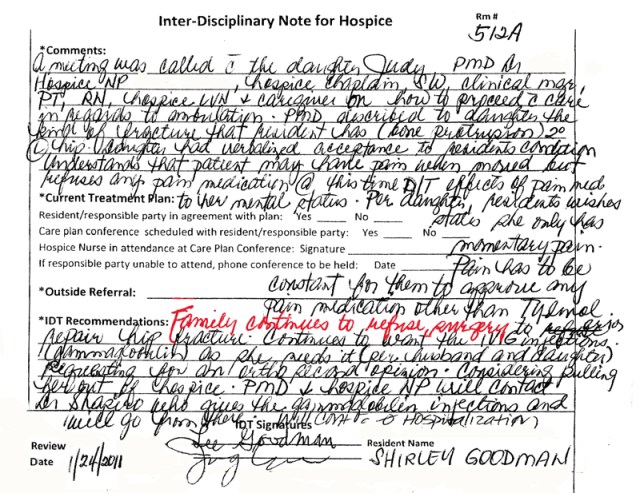 Inter-Disciplinary Note for Hospice
Rm #
512A
*Comments:
A meeting was called c̄ the daughter Judy PMD Dr
Hospice NP , hospice chaplain, SW, clinical mgr,
PT, RN, hospice LVN & caregiver on how to proceed c̄ care
in regards to ambulation. PMD described to daughter the
kind of fracture that resident has (bone protrusion) 2°
(L) hip. Daughter had verbalized acceptance to residents condition
Understands that patient may have pain when moved but
refuses any pain medication @ this time D/T effects of pain med
*Current Treatment Plan: to her mental status. Per daughter, residents wishes
Resident/responsible party in agreement with plan: Yes ___ No ___ states she only has
Care plan conference scheduled with resident/responsible party: Yes ___ No
Hospice Nurse in attendance at Care Plan Conference: Signature momentary pain.
If responsible party unable to attend, phone conference to be held: Date Pain has to be
constant for them to approve any
*Outside Referral: pain medication other than Tylenol.
*IDT Recommendations: Family continues to refuse surgery to
repair hip fracture. Continues to want the IVIG injections
(gammaglobulin) as she needs it (per husband and daughter)
Requesting for an ortho second opinion. Considering pulling
her out of hospice. PMD & hospice NP will contact
Dr Shapiro who gives the gammaglobulin injections and
will go from there. Will cont Hospitalization
IDT Signatures
Lee Goodman
Review
Date 1/24/2011
Resident Name
SHIRLEY GOODMAN